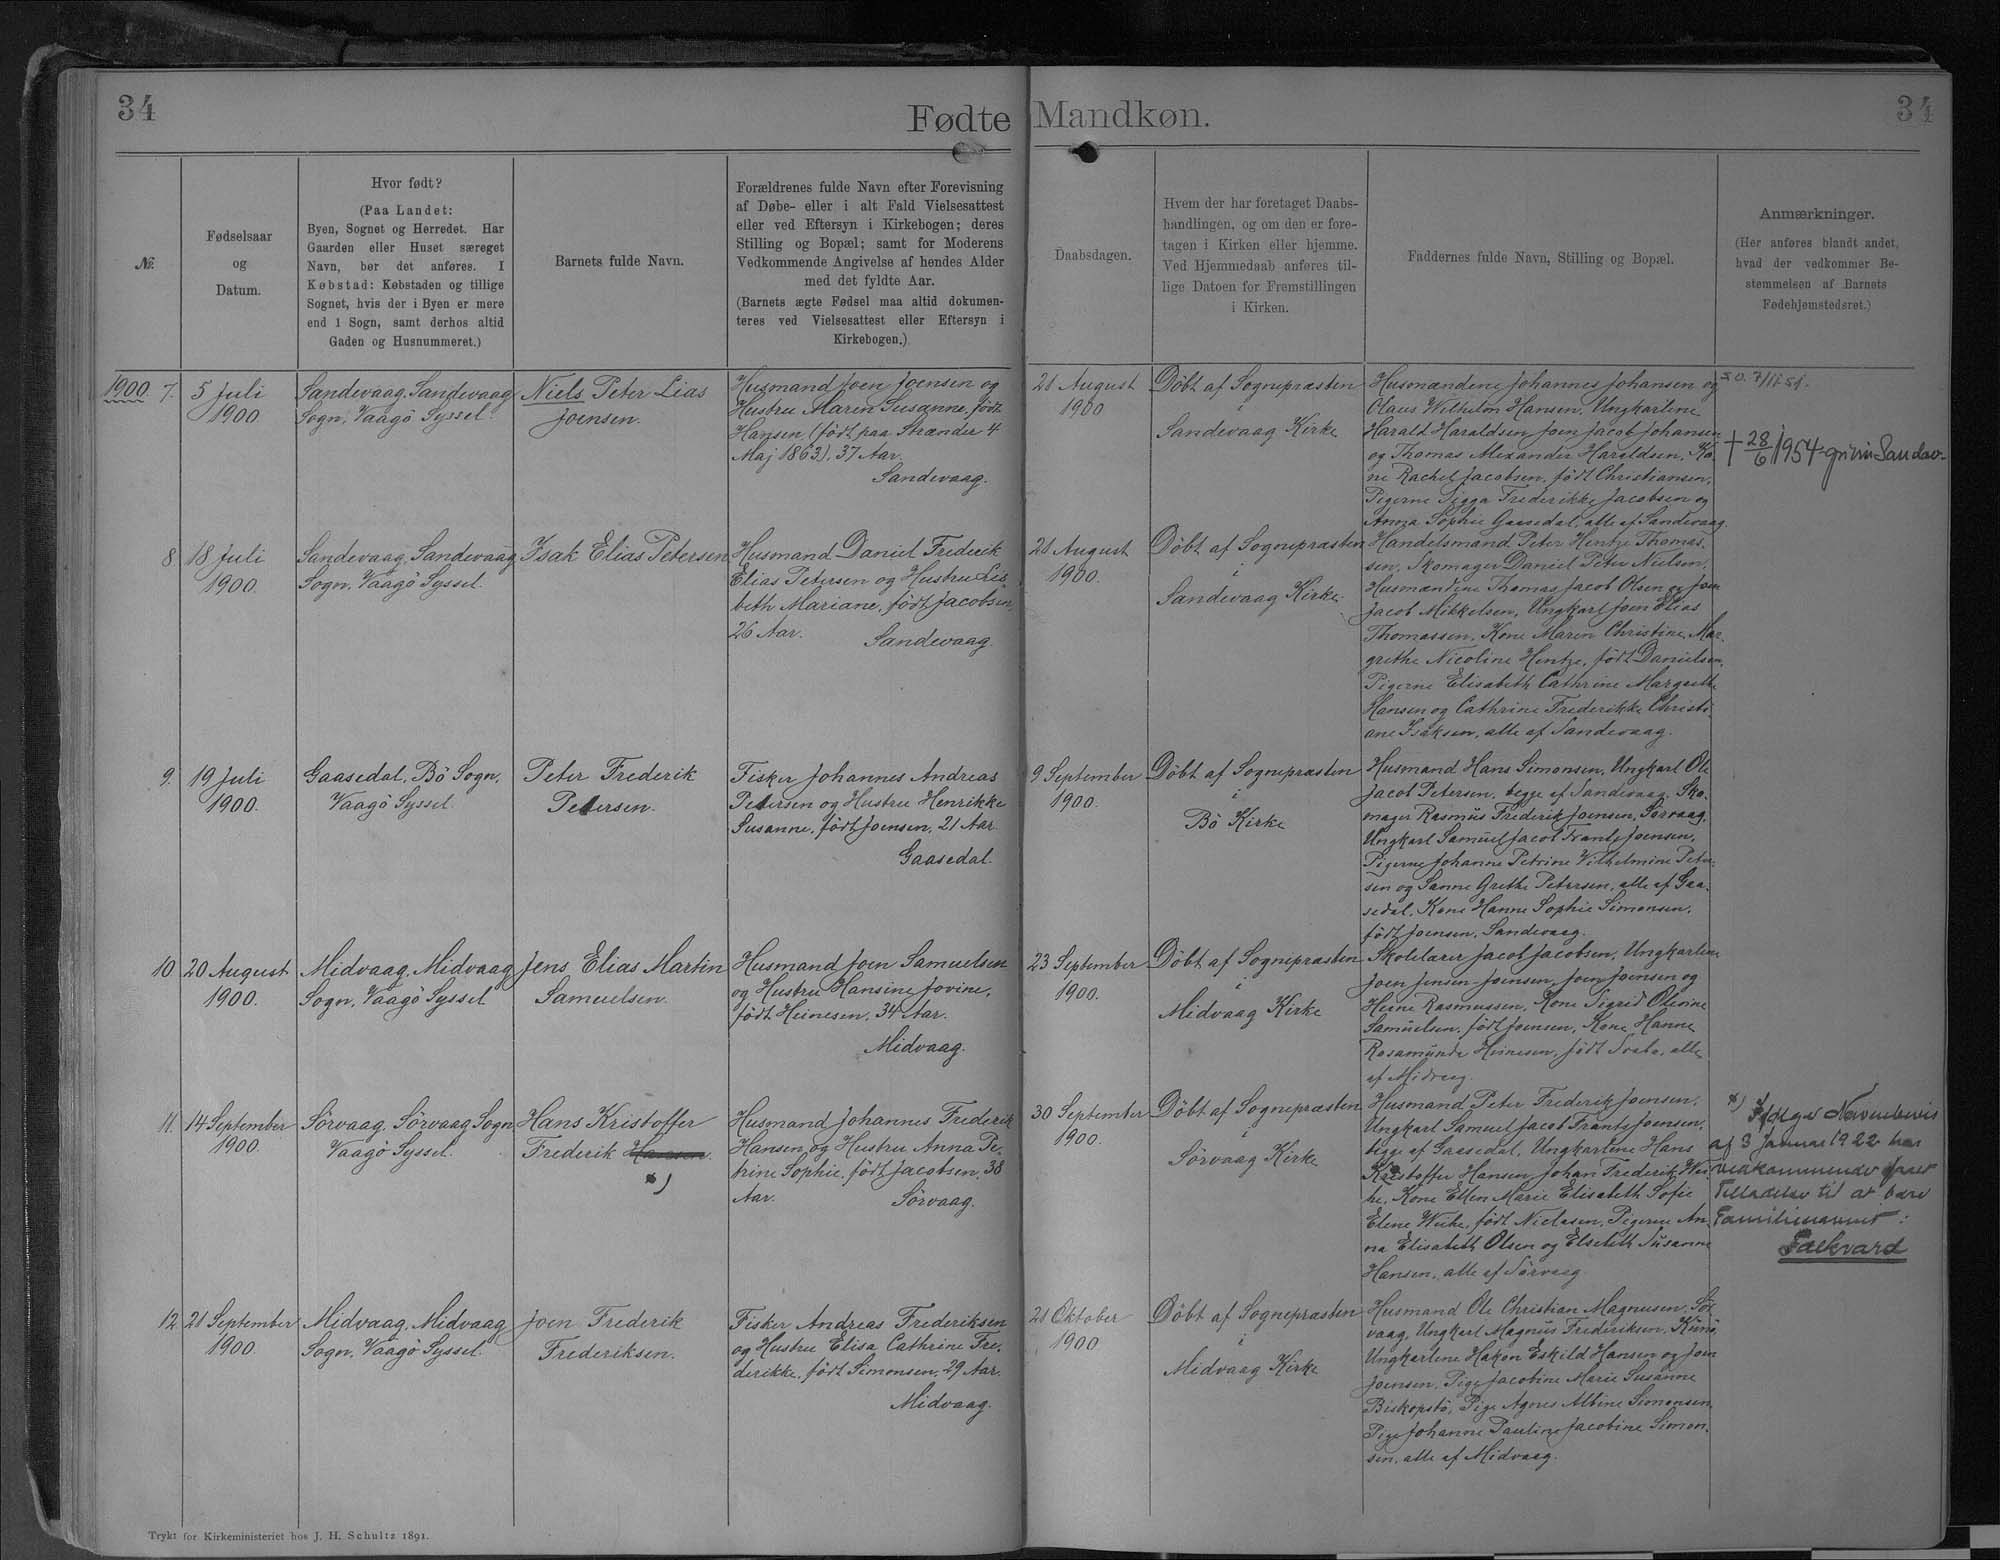 34
Fødte Mandkøn.
34
№.
Fødselsaar
og
Datum.
Hvor født?
(Paa Landet:
Byen, Sognet og Herredet. Har
Gaarden eller Huset særeget
Navn, bør det anføres. I
Købstad: Købstaden og tillige
Sognet, hvis der i Byen er mere
end 1 Sogn, samt derhos altid
Gaden og Husnummeret.)
Barnets fulde Navn.
Forældrenes fulde Navn efter Forevisning
af Døbe- eller i alt Fald Vielsesattest
eller ved Eftersyn i Kirkebogen; deres
Stilling og Bopæl; samt for Moderens
Vedkommende Angivelse af hendes Alder
med det fyldte Aar.
(Barnets ægte Fødsel maa altid dokumen-
teres ved Vielsesattest eller Eftersyn i
Kirkebogen.)
Daabsdagen.
Hvem der har foretaget Daabs-
handlingen, og om den er fore-
tagen i Kirken eller hjemme.
Ved Hjemmedaab anføres til-
lige Datoen for Fremstillingen
i Kirken.
Faddernes fulde Navn, Stilling og Bopæl.
Anmærkninger.
(Her anføres blandt andet,
hvad der vedkommer Be-
stemmelsen af Barnets
Fødehjemstedsret.)
1900. 7.
5 Juli
1900
Sandevaag, Sandevaag
Sogn, Vaagö Syssel.
Niels Peter Lias
Joensen.
Husmand Joen Joensen og
Hustru Maren Susanne, födt
Hansen (födt paa Strænder 4
Maj 1863), 37 Aar.
Sandevaag.
21 August
1900
Döbt af Sognepræsten
i
Sandevaag Kirke
Husmændene Johannes Johansen og
Olaus Wilhelm Hansen, Ungkarlene
Harald Haraldsen Joen Jacob Johansen
og Thomas Alexander Haraldsen, Ko-
ne Rachel Jacobsen, födt Christiansen,
Pigerne Sigga Frederikke Jacobsen og
Anna Sophie Gaasedal, alle af Sandevaag.
† 28/6 1954
8
18 Juli
1900.
Sandevaag, Sandevaag
Sogn, Vaagö Syssel.
Isak Elias Petersen
Husmand Daniel Frederik
Elias Petersen og Hustru Lis-
beth Mariane, födt Jacobsen,
26 Aar.
Sandevaag.
21 August
1900.
Döbt af Sognepræsten
i
Sandevaag Kirke.
Handelsmand Peter Hentze Thomas-
sen, Skomager Daniel Peter Nielsen,
Husmændene Thomas Jacob Olsen og Joen
Jacob Mikkelsen, Ungkarl Joen Elias
Thomassen, Kone Maren Christine Mar-
grethe Nicoline Hentze, födt Danielsen,
Pigerne Elisabeth Cathrine Margrethe
Hansen og Cathrine Frederikke Christi-
ane Isaksen, alle af Sandevaag.
9.
19 Juli
1900.
Gaasedal, Bö Sogn,
Vaagö Syssel.
Peter Frederik
Petersen.
Fisker Johannes Andreas
Petersen og Hustru Henrikke
Susanne, födt Joensen, 21 Aar.
Gaasedal.
9 September
1900.
Döbt af Sognepræsten
i
Bö Kirke
Husmand Hans Simonsen, Ungkarl Ole
Jacob Petersen, begge af Sandevaag, Sko-
mager Rasmus Frederik Joensen, Sörvaag,
Ungkarl Samuel Jacob Frants Joensen,
Pigerne Johanne Petrine Wilhelmine Peter-
sen og Sanne Grethe Petersen, alle af Gaa-
sedal, Kone Hanne Sophie Simonsen,
födt Joensen, Sandevaag.
10
20 August
1900.
Midvaag, Midvaag
Sogn, Vaagö Syssel
Jens Elias Martin
Samuelsen.
Husmand Joen Samuelsen
og Hustru Hansine Jovine,
födt Heinesen, 34 Aar.
Midvaag.
23 September
1900.
Döbt af Sognepræsten
i
Midvaag Kirke
Skolelærer Jacob Jacobsen, Ungkarlene
Joen Jensen Joensen, Joen Joensen og
Heine Rasmussen, Kone Sigrid Olevine
Samuelsen, födt Joensen, Kone Hanne
Rosamunde Heinesen, födt Svabo, alle
af Midvaag.
11.
14 September
1900.
Sörvaag, Sörvaag Sogn
Vaagö Syssel.
Hans Kristoffer
Frederik Hansen.
*)
Husmand Johannes Frederik
Hansen og Hustru Anna Pe-
trine Sophie, födt Jacobsen, 38
Aar.
Sörvaag.
30 September
1900.
Döbt af Sognepræsten
i
Sörvaag Kirke
Husmand Peter Frederik Joensen,
Ungkarl Samuel Jacob Frants Joensen,
begge af Gaasedal, Ungkarlene Hans
Kristoffer Hansen, Johan Frederik Wei-
he, Kone Ellen Marie Elisabeth Sofie
Elene Weihe, födt Niclasen, Pigerne An-
na Elisabeth Olsen og Elsebeth Susanne
Hansen, alle af Sörvaag.
*) Ifølge Navnebevis
af 3 Januar 1922 har
vedkommende faaet
Tilladelse til at bære
Familienavnet:
Falkvard
12
21 September
1900.
Midvaag, Midvaag
Sogn, Vaagö Syssel.
Joen Frederik
Frederiksen.
Fisker Andreas Frederiksen
og Hustru Elisa Cathrine Fre-
derikke, födt Simonsen, 29 Aar.
Midvaag.
21 Oktober
1900
Döbt af Sognepræsten
i
Midvaag Kirke
Husmand Ole Christian Magnusen, Sör-
vaag, Ungkarl Magnus Frederiksen, Kunö,
Ungkarlene Hakon Eskild Hansen og Joen
Joensen, Pige Jacobine Marie Susanne
Biskopstö, Pige Agnes Albine Simonsen,
Pige Johanne Pauline Jacobine Simon-
sen, alle af Midvaag.
Trykt for Kirkeministeriet hos J. H. Schultz 1891.